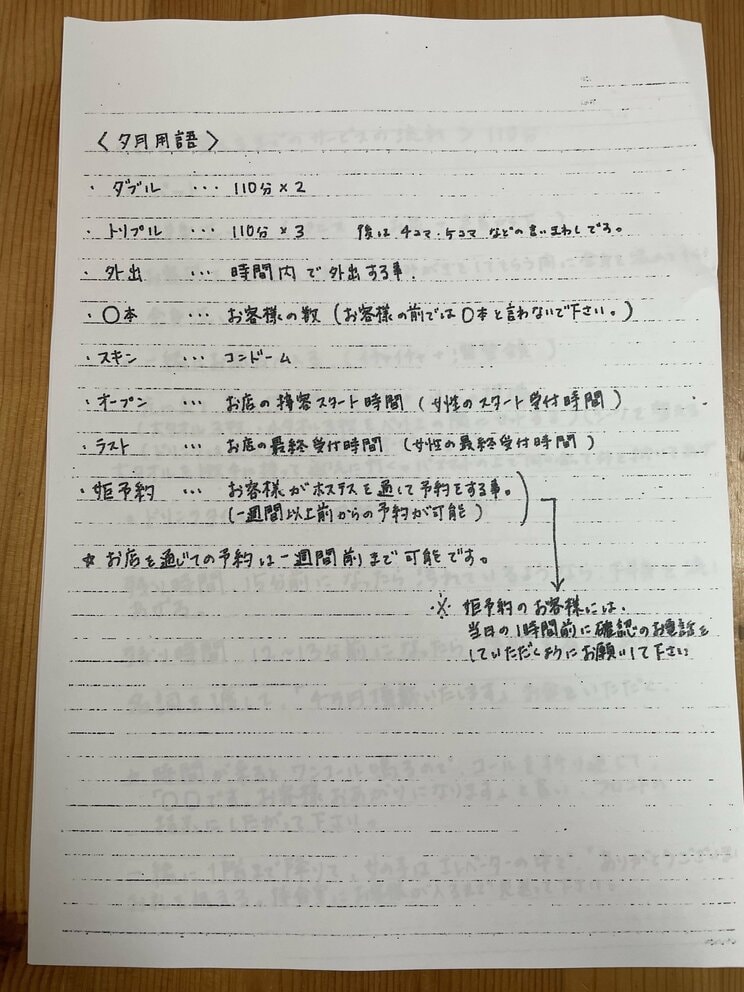 〈夕月用語〉
・ダブル … 110分×2
・トリプル … 110分×3 後は4コマ・5コマなどの言いまわしです。
・外出 … 時間内で外出する事.
・〇本 … お客様の数(お客様の前では〇本と言わないで下さい。)
・スキン … コンドーム
・オープン … お店の接客スタート時間(女性のスタート受付時間)
・ラスト … お店の最終受付時間(女性の最終受付時間)
・姫予約 … お客様がホステスを通して予約をする事。
(一週間以上前からの予約が可能)
☆お店を通じての予約は一週間前まで可能です。
※姫予約のお客様には、
当日の1時間前に確認のお電話を
していただくようにお願いして下さい